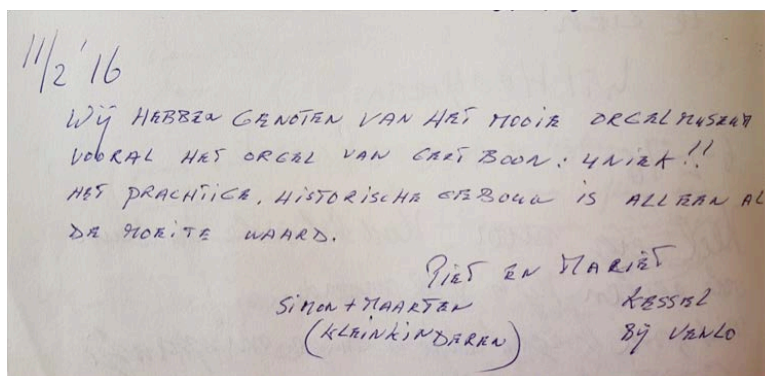 11/2 '16
WIJ HEBBEN GENOTEN VAN HET MOOIE ORGELMUSEUM
VOORAL HET ORGEL VAN GERT BOON: UNIEK!!
HET PRACHTIGE, HISTORISCHE GEBOUW IS ALLEEN AL
DE MOEITE WAARD.
PIET EN MARIET
SIMON + MAARTEN KESSEL
(KLEINKINDEREN) BIJ VENLO